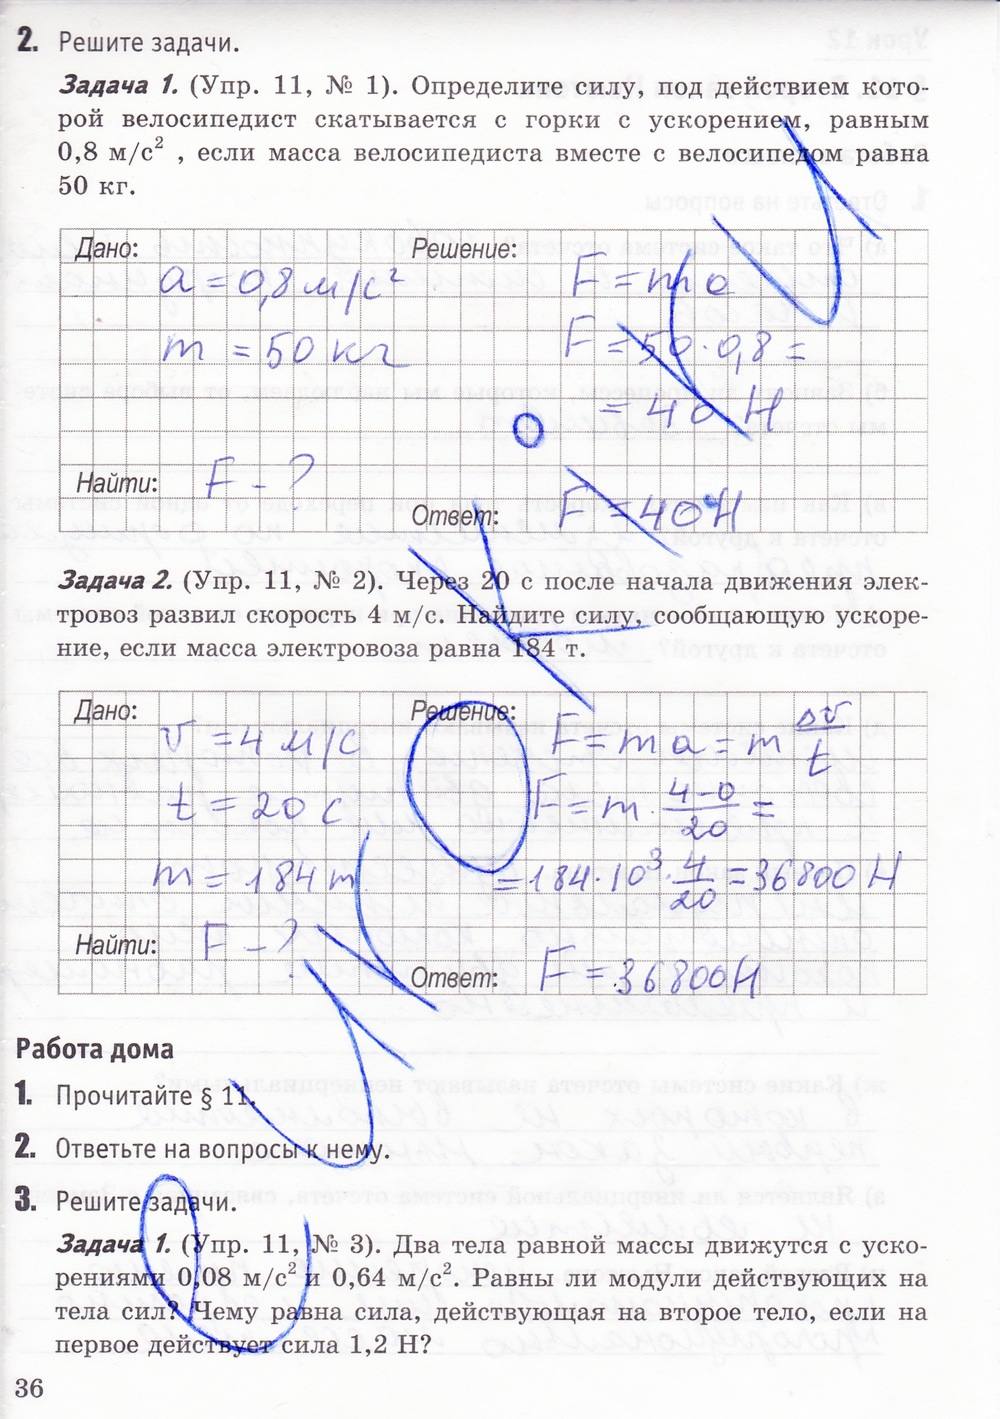 2. Решите задачи.
Задача 1. (Упр. 11, № 1). Определите силу, под действием кото-
рой велосипедист скатывается с горки с ускорением, равным
0,8 м/с² , если масса велосипедиста вместе с велосипедом равна
50 кг.
Дано: Решение:
a = 0,8 м/с² F = ma
m = 50 кг F = 50 · 0,8 =
= 40 Н
Найти: F - ?
Ответ: F = 40 Н
Задача 2. (Упр. 11, № 2). Через 20 с после начала движения элек-
тровоз развил скорость 4 м/с. Найдите силу, сообщающую ускоре-
ние, если масса электровоза равна 184 т.
Дано: Решение:
v = 4 м/с F = ma = m Δv/t
t = 20 с F = m · 4-0/20 =
m = 184 т = 184 · 10³ · 4/20 = 36800 Н
Найти: F - ?
Ответ: F = 36800 Н
Работа дома
1. Прочитайте § 11.
2. Ответьте на вопросы к нему.
3. Решите задачи.
Задача 1. (Упр. 11, № 3). Два тела равной массы движутся с уско-
рениями 0,08 м/с² и 0,64 м/с². Равны ли модули действующих на
тела сил? Чему равна сила, действующая на второе тело, если на
первое действует сила 1,2 Н?
36